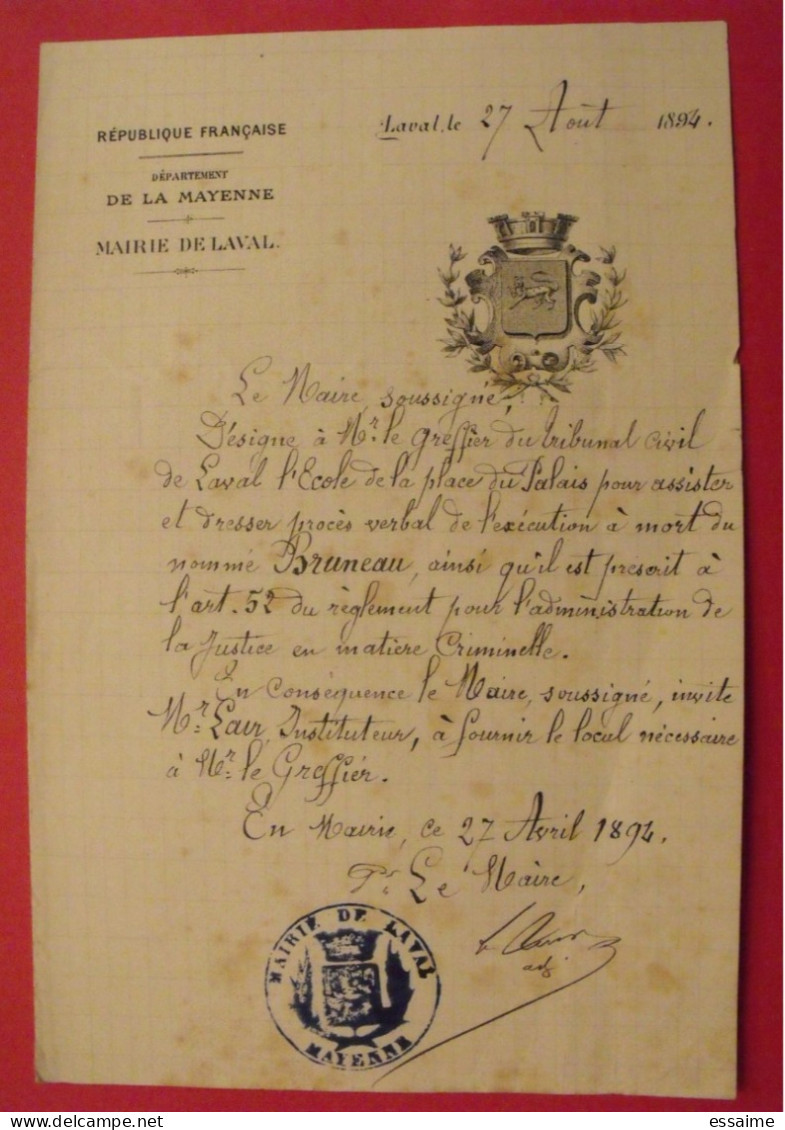 RÉPUBLIQUE FRANÇAISE
DÉPARTEMENT
DE LA MAYENNE
MAIRIE DE LAVAL.
Laval, le 27 Août 1894.
Le Maire, soussigné,
Désigne à Mr. le greffier du tribunal civil
de Laval l'Ecole de la place du Palais pour assister
et dresser procès verbal de l'exécution à mort du
nommé Bruneau, ainsi qu'il est prescrit à
l'art. 52 du règlement pour l'administration de
la Justice en matière Criminelle.
En Conséquence le Maire, soussigné, invite
Mr. Lair, Instituteur, à fournir le local nécessaire
à Mr. le Greffier.
En Mairie, ce 27 Avril 1894.
Pr. Le Maire,
adj
MAIRIE DE LAVAL
MAYENNE
delcampe.net
essaime